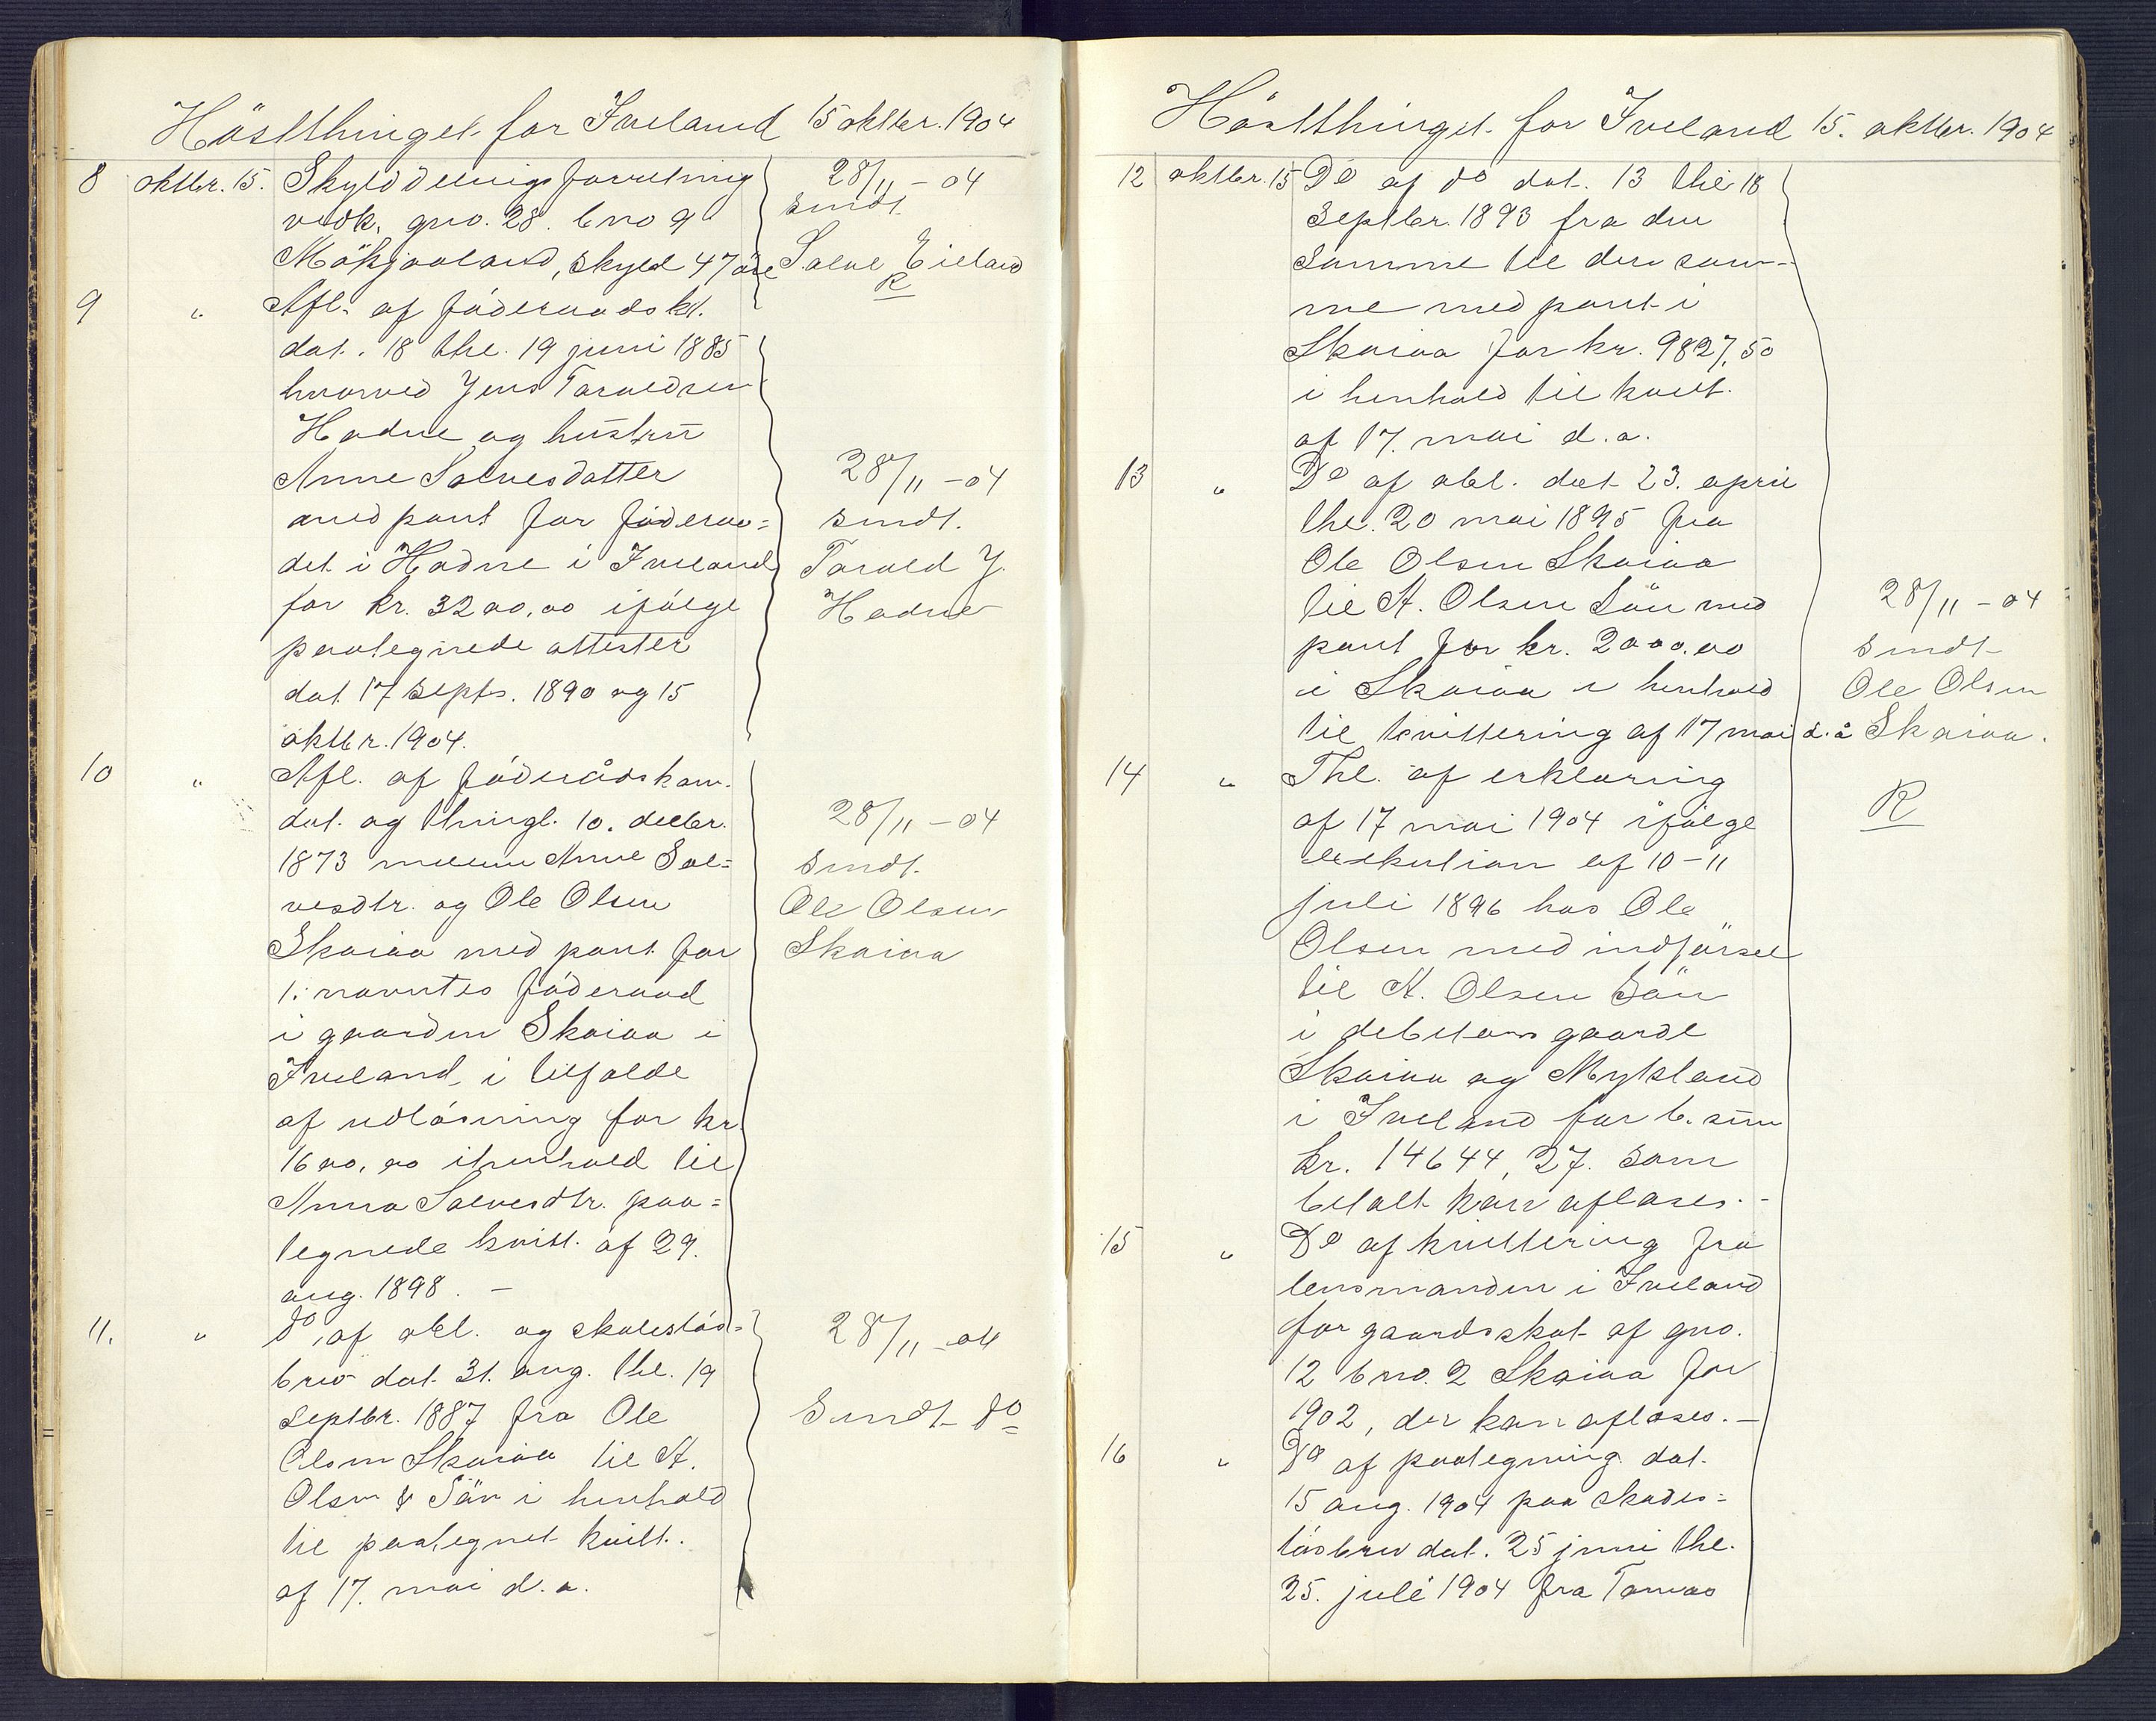 Höstthinget for Iveland 15 oktbr. 1904
8 oktbr. 15. Skylddelingsforretning 28/11 - 04
vedk. gno. 28. bno 9 Sendt.
Mökjaaland, skyld 47 öre Salve Eieland
R
9 " Afl. af föderaadsk.
dat. 18 thl. 19 juni 1885
hvorved Jens Taraldsen
Hodne og hustru
Anne Salvesdatter 28/11 - 04
med pant for föderaa= sendt.
det i Hodne i Iveland Tarald J.
for kr. 3200,00 ifölge Hodne
paategnede attester
dat. 17 septr. 1890 og 15
oktbr. 1904.
10 " Afl. af föderådskon.
dat. og thingl. 10. decbr. 28/11 - 04
1873 mellem Anne Sal= Sendt.
vesdtr. og Ole Olsen Ole Olsen
Skaiaa med pant for Skaiaa
1. navntes föderaad
i gaarden Skaiaa i
Iveland, i tilfælde
af udlösning for kr.
1600,00 ihenhold til
Anna Salvesdtr. paa=
tegnede kvitt. af 29.
aug. 1898. -
11. " do. af obl. og skadeslös= 28/11 - 04
brev dat. 31. aug. thl. 19
septbr. 1887 fra Ole Sendt do
Olsen Skaiaa til A.
Olsen & Sön i henhold
til paategnet kvitt.
af 17. mai d.a.
Höstthinget for Iveland 15. oktbr. 1904
12 oktbr. 15 Do af do dat. 13 thl 18
Septbr. 1893 fra den
samme til den sam-
me med pant i
Skaiaa for kr. 9827,50
i henhold til kvit.
af 17. mai d.a.
13 " Do af obl. dat 23. april
thl. 20 mai 1895 fra
Ole Olsen Skaiaa
til A. Olsen Sön med 28/11 - 04
pant for kr. 2000.00 sendt
i Skaiaa i henhold Ole Olsen
til kvittering af 17 mai d.å Skaiaa.
14 " Thl. af erklæring R
af 17 mai 1904 ifölge
exekution af 10-11
juli 1896 hos Ole
Olsen med indförsel
til A. Olsen Sön
i debitors gaarde
Skaiaa og Mykland
i Iveland for b. sum
kr. 14644,27. som
betalt kan aflæses. -
15 " Do af kvittering fra
lensmanden i Iveland
for gaardsskat af gno.
12 bno. 2 Skaiaa for
1902, der kan aflæses. -
16 " Do af paategning dat.
15 aug. 1904 paa skades=
lösbrev dat. 25 juni thl.
25. juli 1904 fra Tomas